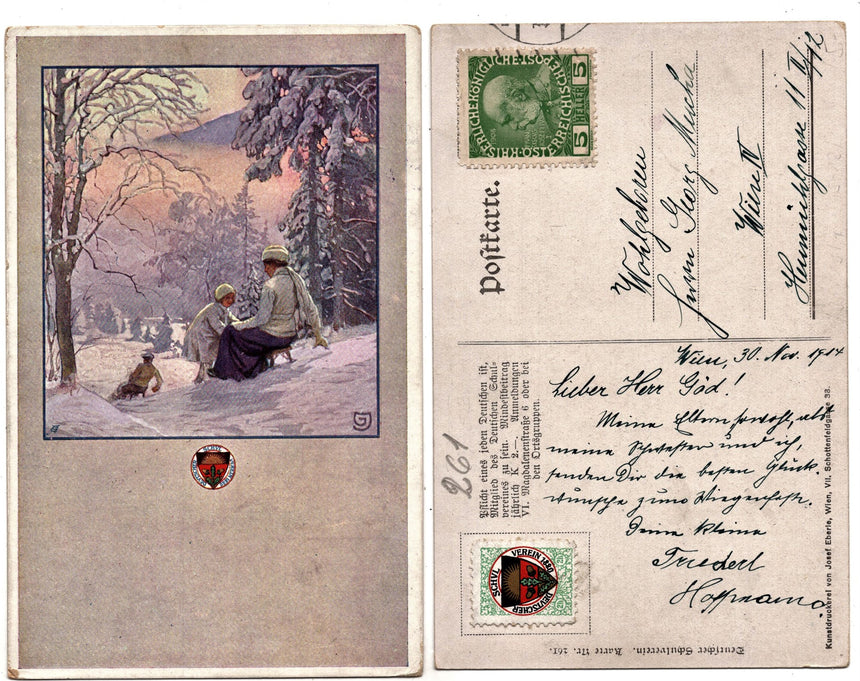 SCHVL
VEREIN
5
KAISERLICHEKÖNIGLICHE
ÖSTERREICHISCHE POST
5
HELLER
5
Postkarte.
Wohlgeboren
Herrn Georg
Wien IV
11
Wien, 30. Nov. 1914
Lieber Herr Göd!
Meine Eltern sowohl, als
meine Schwester und ich,
senden Dir die besten Glück-
wünsche zum Wiegenfeste.
Deine kleine
Friederl
Hoffmann
261
Pflicht eines jeden Deutschen ist,
Mitglied des Deutschen Schul-
vereines zu sein. Mindestbeitrag
jährlich K 2.—. Anmeldungen
VI. Magdalenenstraße 6 oder bei
den Ortsgruppen.
DEUTSCHER
SCHVL
VEREIN 1880
Deutscher Schulverein. Karte Nr. 261.
Kunstdruckerei von Josef Eberle, Wien, VII. Schottenfeldgasse 38.